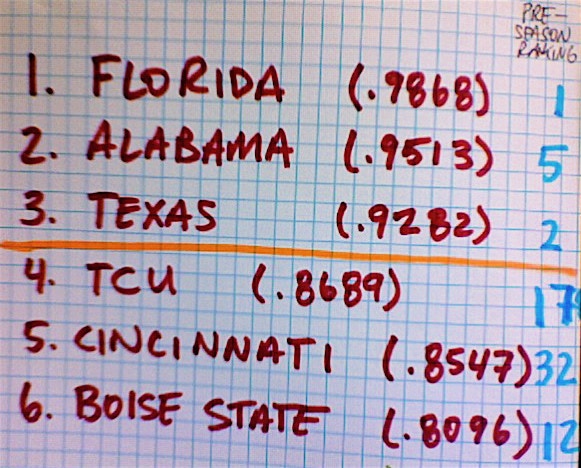 PRE-
SEASON
RANKING
1. FLORIDA (.9868) 1
2. ALABAMA (.9513) 5
3. TEXAS (.9282) 2
4. TCU (.8689) 17
5. CINCINNATI (.8547) 32
6. BOISE STATE (.8096) 12